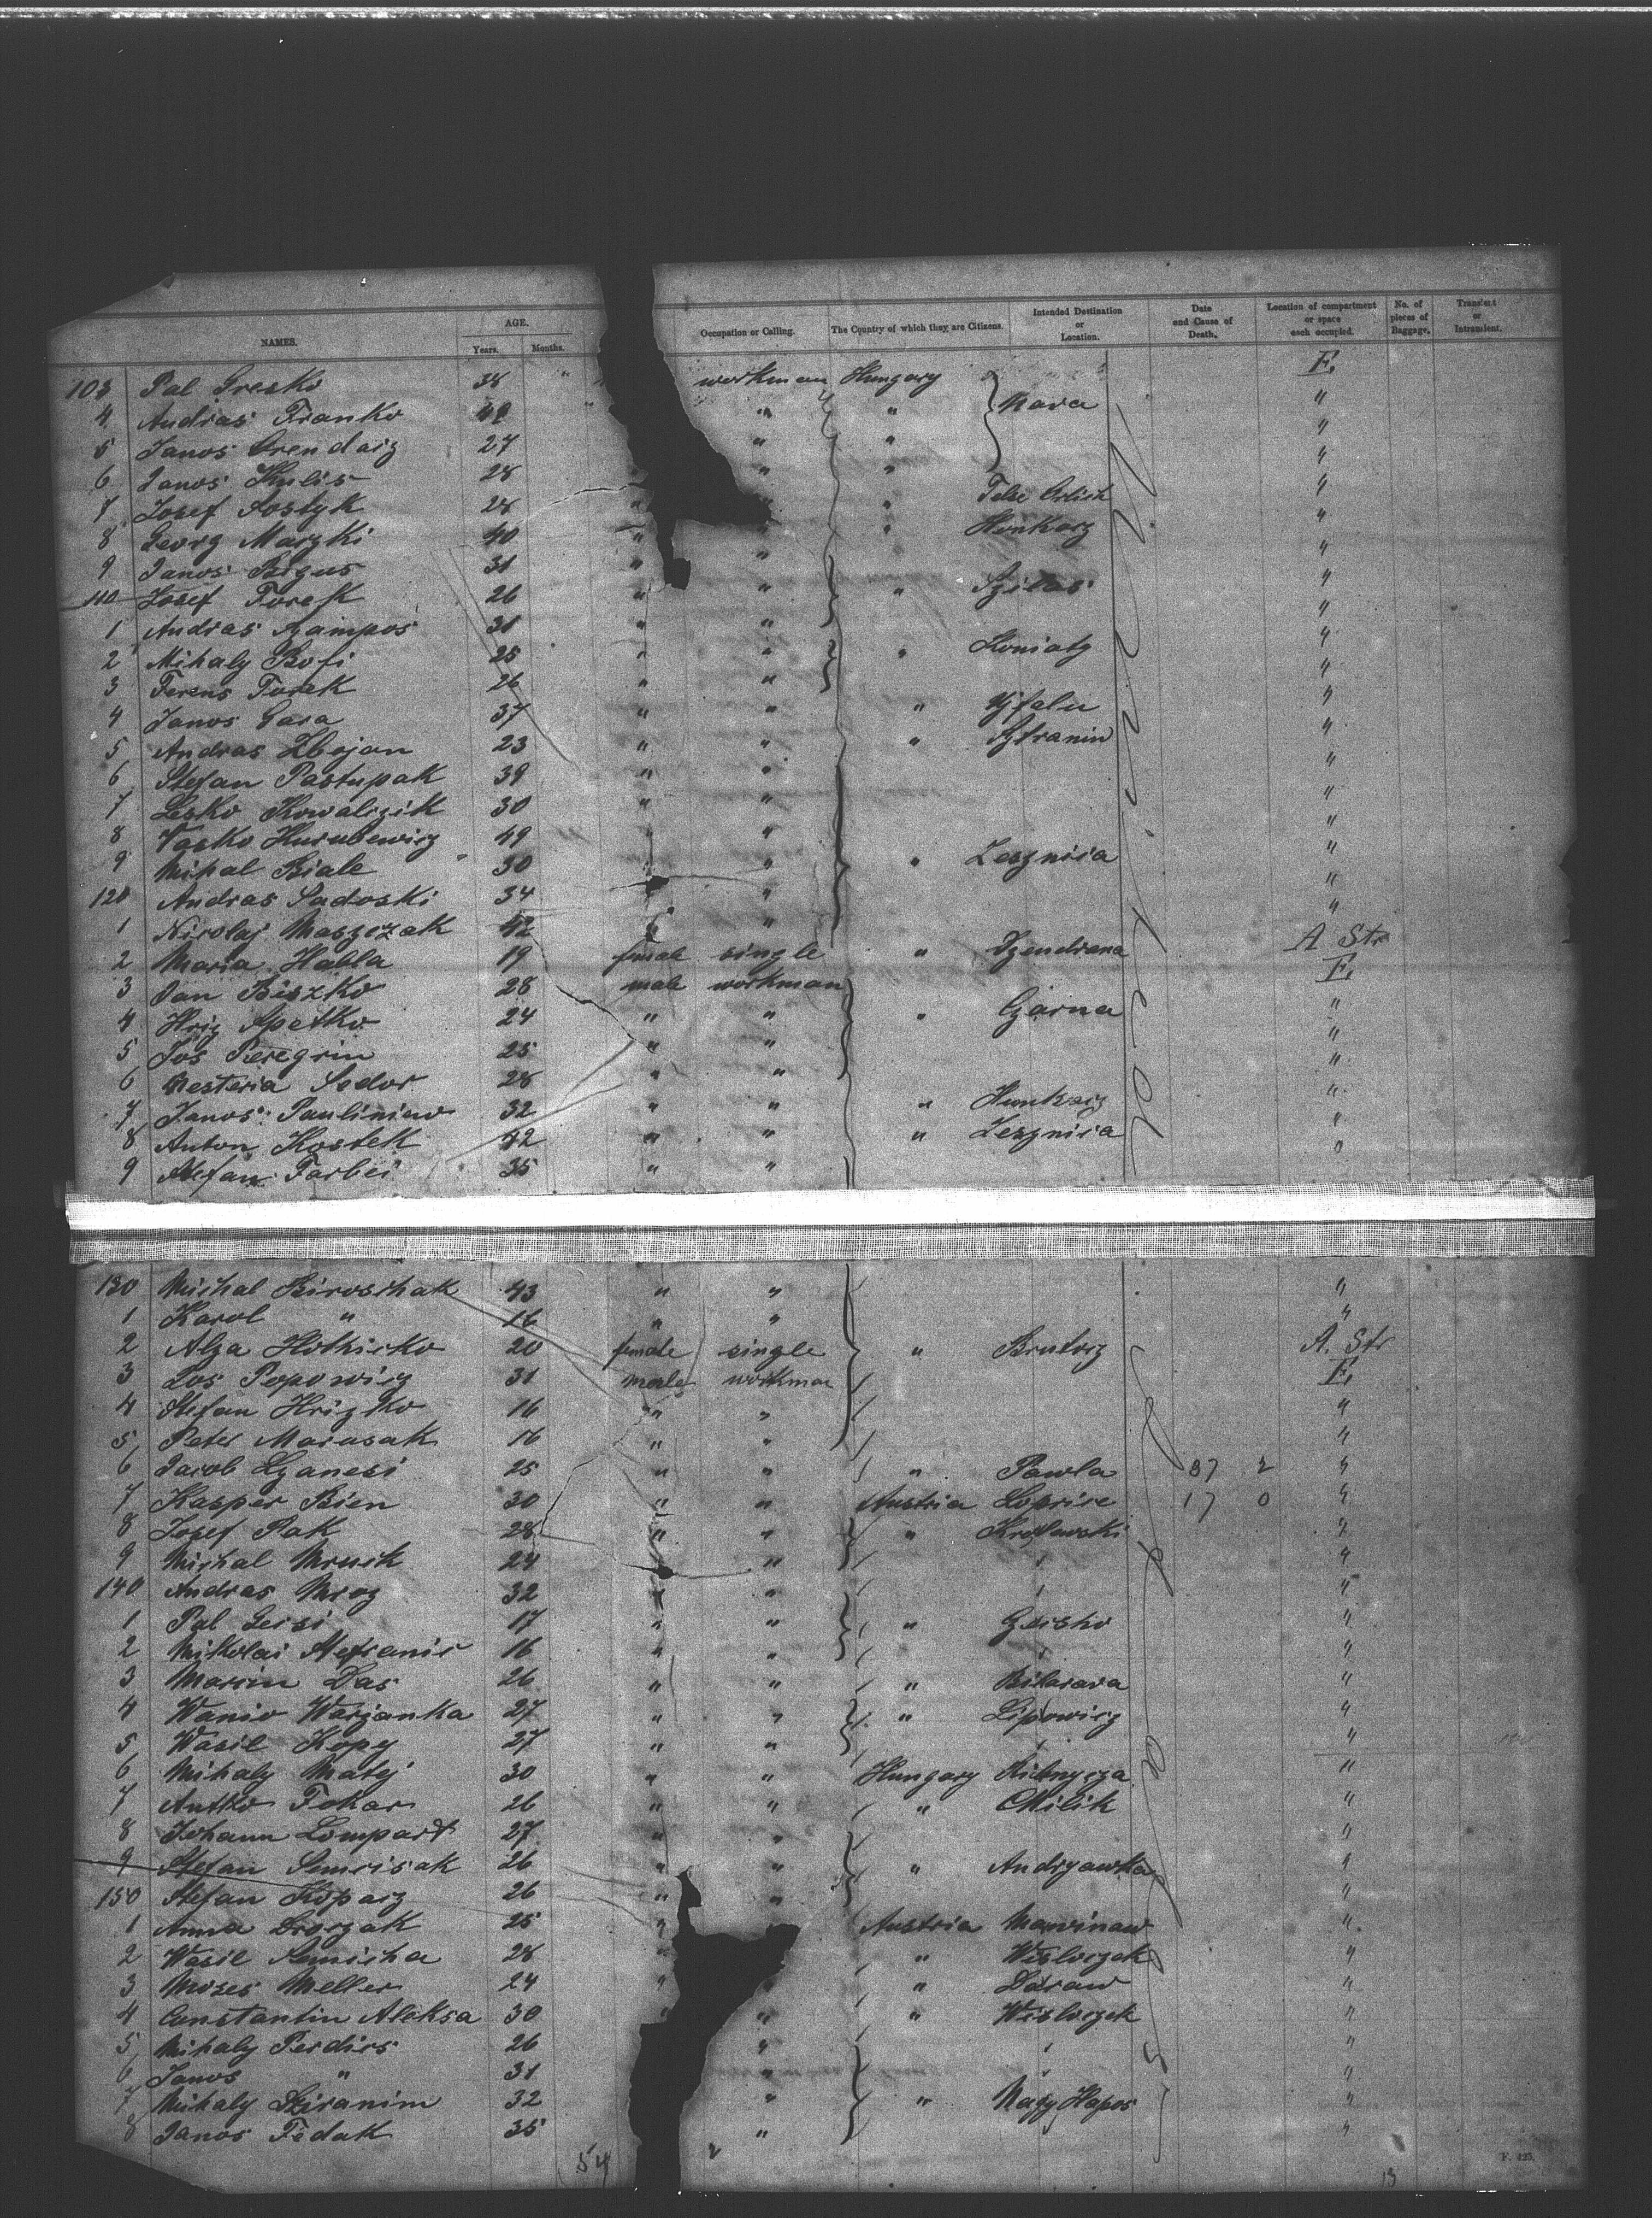 NAMES. AGE. Years. Months. Occupation or Calling. The Country of which they are Citizens. Intended Destination or Location. Date and Cause of Death. Location of compartment or space each occupied. No. of pieces of Baggage. Transient or Intransient.
103 Pal Gresko 38 " workman Hungary F.
4 Andras Franko 42 " " " Nava "
5 Janos Orendacz 27 " " "
6 Janos Kulis 28 " " "
7 Josef Sostyk 28 " " "
8 Georg Maczki 40 " " Hunkacz "
9 Janos Bigus 31 " " "
110 Josef Turek 26 " " " Szilas "
1 Andras 31 " " "
2 Mihaly Bofi 25 " " " "
3 Ferens Turek 26 " " "
4 Janos Gara 37 " " " Ujfalu "
5 Andras Zbojan 23 " " " Sztranin "
6 Stefan Pastupak 39 " " "
7 Lesko Kowalczik 30 " " "
8 Vasko 49 " " "
9 Mihal Biale 30 " " " Lesznica "
120 Andras Sadoski 34 " "
1 Nicolaj Maszczak 42 " " "
2 Maria Halla 19 female single " A Str
3 Jan Biszko 28 male workman F.
4 Hric Spetko 24 " " " Czarna "
5 Jos Peregrin 25 " " "
6 Nesteria Sedor 28 " " "
7 Janos Pauliniaw 32 " " " Hunkacz "
8 Anton Kostek 42 " " " Lesznica "
9 Stefan Farbei 35 " "
130 Michal Biroschak 43 " " "
1 Karol " 16 " " "
2 Alza Hothicko 20 female single " A. Str
3 Jos Popowicz 31 male workman F.
4 Stefan Hrizko 16 " " "
5 Peter Marusak 16 " " "
6 Jacob 25 " " " Pawla 87 2 "
7 Kasper Bien 30 " " Austria 17 0 "
8 Josef Pak 28 " " " "
9 Michal Mrucik 24 " " "
140 Andras Mroz 32 " " "
1 Pal Geisi 17 " " " "
2 Mikolai Stefanic 16 " " "
3 Marcin Das 26 " " " "
4 Wanio Warjanka 27 " " " Lipowicz "
5 Wasil Kopcy 27 " " "
6 Mihaly Matej 30 " " Hungary "
7 Antko Tokar 26 " " " Milik "
8 Johann Lompart 27 " " "
9 Stefan Semcisak 26 " " " Andrzawka "
150 Stefan Kopacz 26 " " "
1 Anna 25 " Austria "
2 Wasil Semicha 28 " " Wisloczek "
3 Mozes Meller 24 " " " "
4 Constantin Aleksa 30 " " " Wisloczek "
5 Mihaly Perdics 26 " "
6 Janos " 31 " "
7 Mihaly 32 " " Nagy Hapos "
8 Janos Fedak 35 " "
54 13 F. 425.